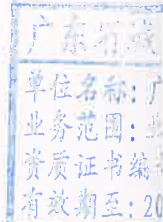 广东
单位名称:广
业务范围:
资质证书编
有效期至:2